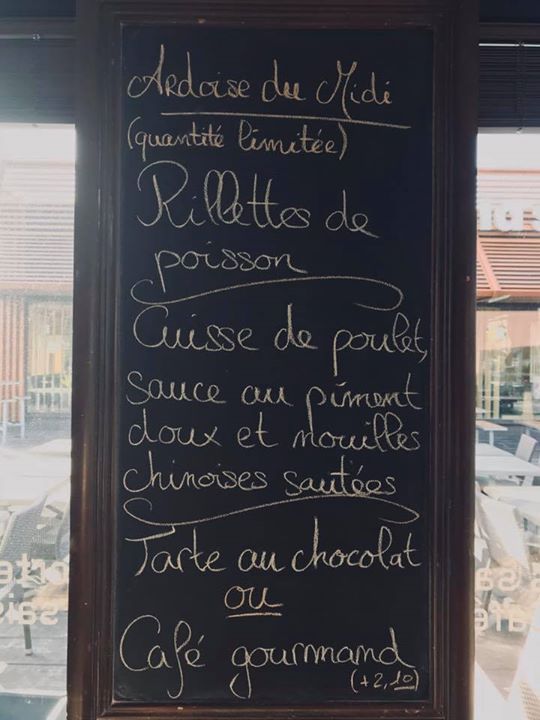 Ardoise du Midi
(quantité limitée)
Rillettes de
poisson
Cuisse de poulet,
sauce au piment
doux et nouilles
chinoises sautées
Tarte au chocolat
ou
Café gourmand
(+2,10)